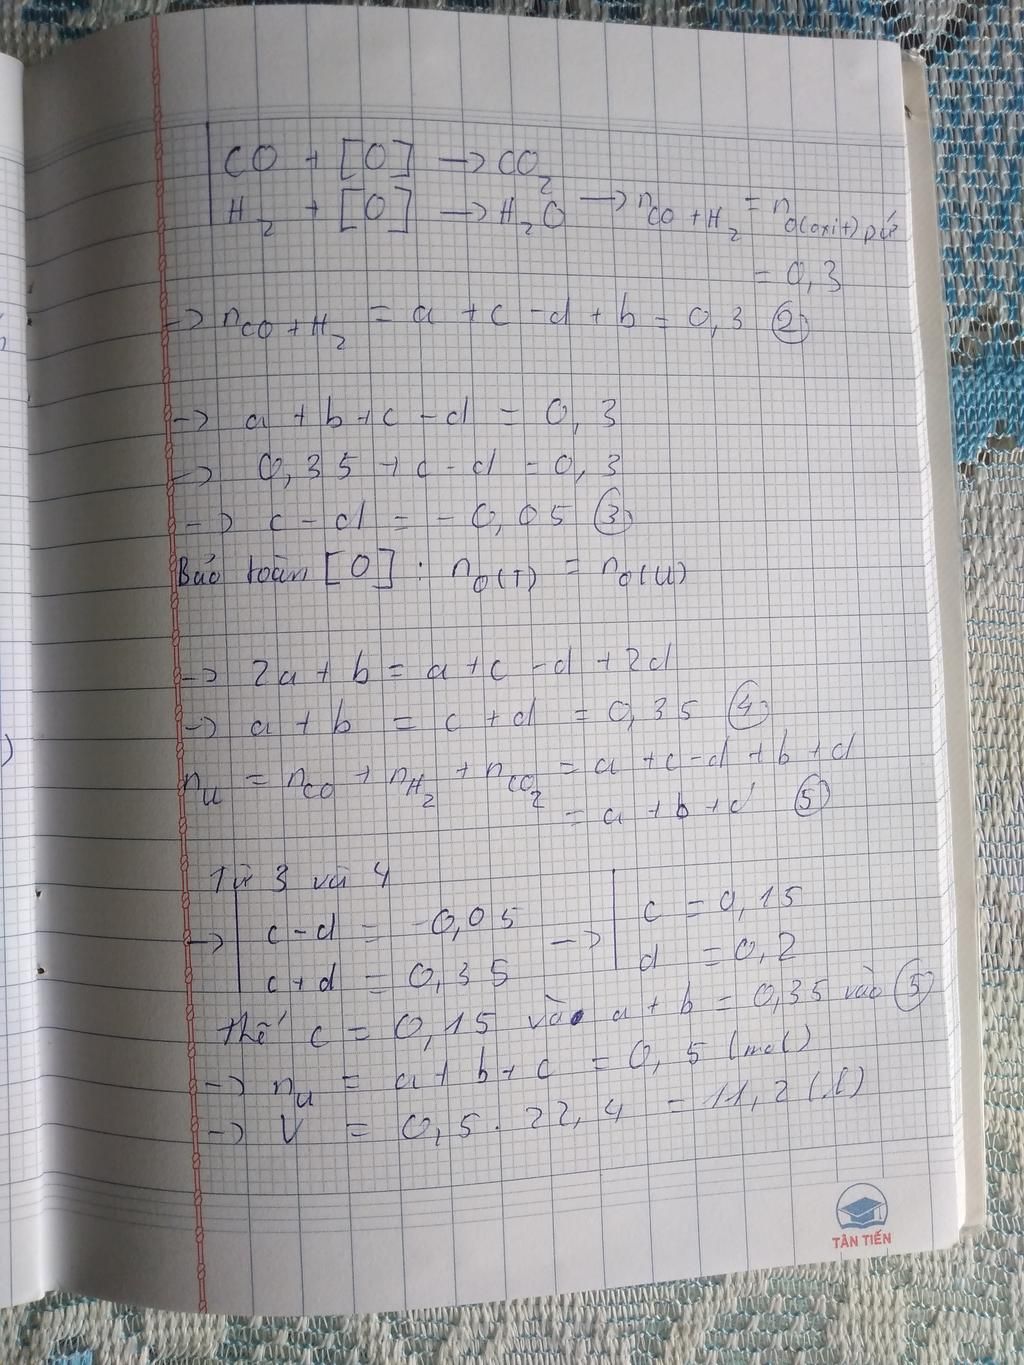 CO + [O] → CO₂
H₂ + [O] → H₂O → nCO + H₂ = nO(oxit) pứ
= 0,3
→ nCO + H₂ = a + c - d + b = 0,3 ②
→ a + b + c - d = 0,3
→ 0,35 + c - d = 0,3
→ c - d = - 0,05 ③
Bảo toàn [O] : nO(T) = nO(U)
→ 2a + b = a + c - d + 2d
→ a + b = c + d = 0,35 ④
nU = nCO + nH₂ + nCO₂ = a + c - d + b + d
= a + b + c ⑤
Từ 3 và 4
→ c - d = -0,05 → c = 0,15
c + d = 0,35 d = 0,2
thế c = 0,15 và a + b = 0,35 vào ⑤
→ nU = a + b + c = 0,5 (mol)
→ V = 0,5 . 22,4 = 11,2 (l)
TÂN TIẾN